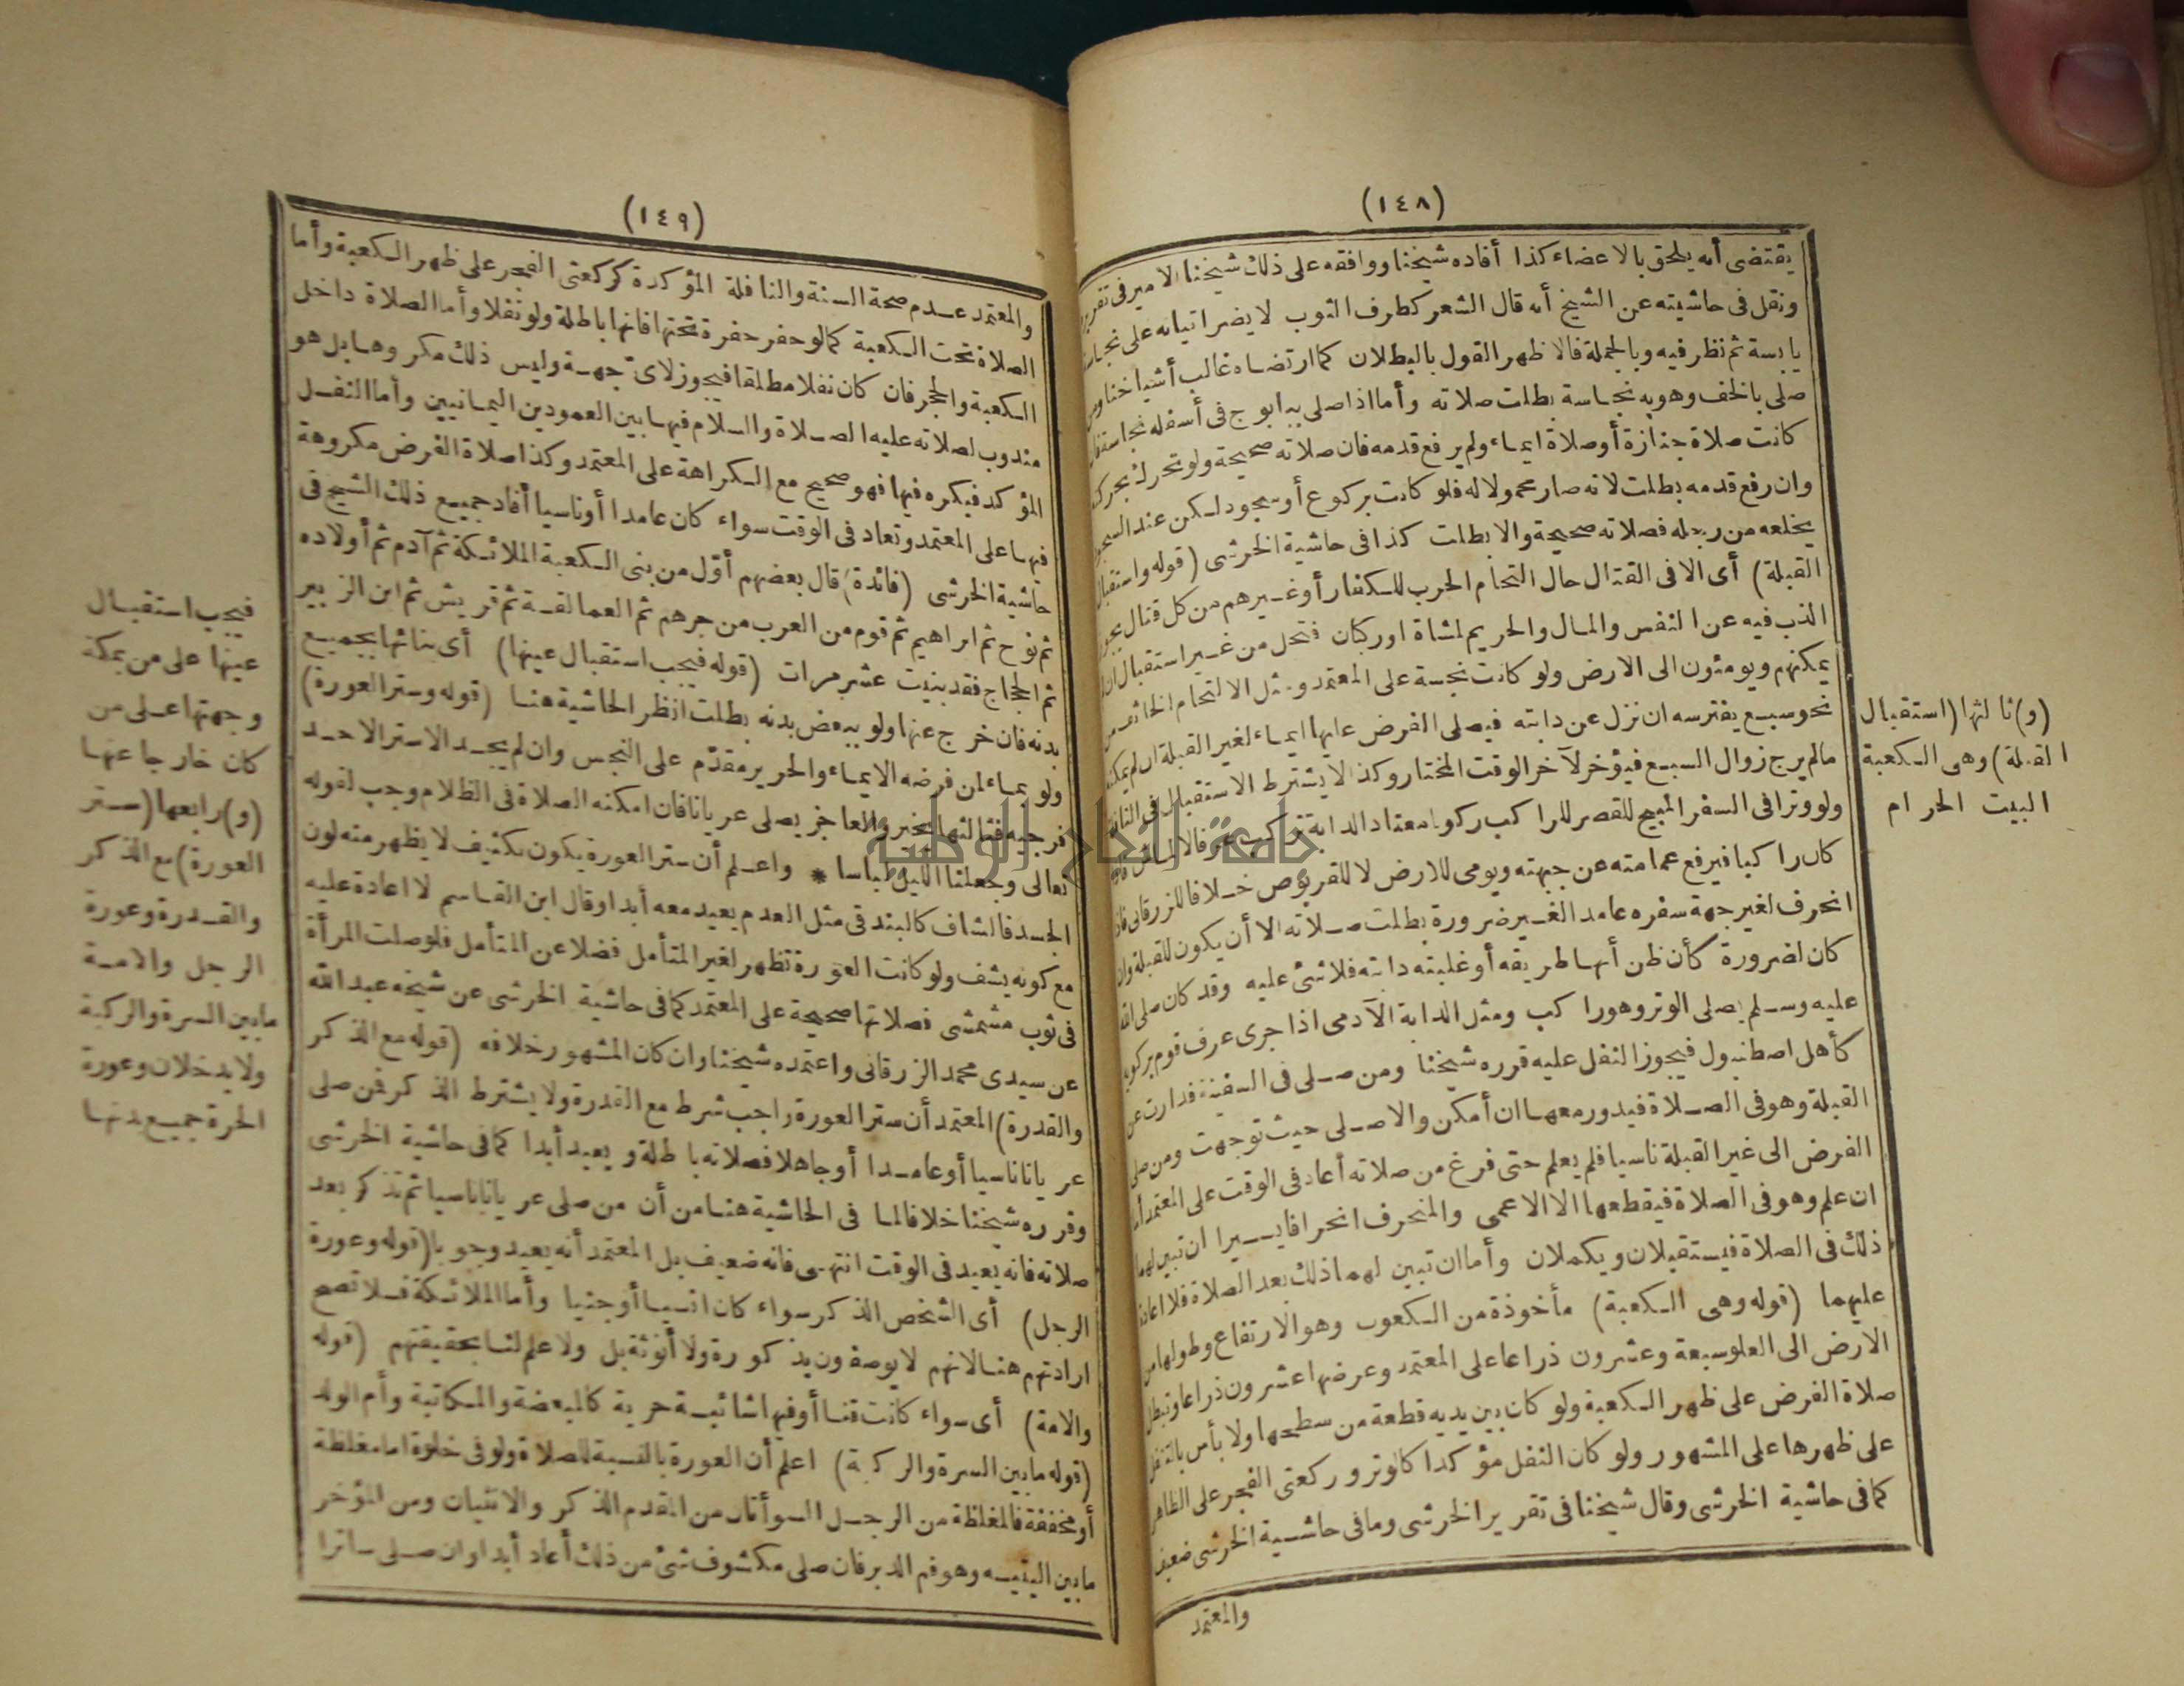 (١٤٨)
يقتضى أنه يلحق بالاعضاء كذا أفاده شيخنا ووافقه على ذلك شيخنا الامير فى
ونقل فى حاشيته عن الشيخ أنه قال الشعر كطرف الثوب لا يضر اتيانه على
يابسة ثم نظر فيه وبالجملة فالاظهر القول بالبطلان كما ارتضاه غالب أشياخنا ومن
صلى بالخف وهو به نجاسة بطلت صلاته وأما اذا صلى به فى أسفله نجاسة
كانت صلاة جنازة أو صلاة ايماء ولم يرفع قدمه فان صلاته صحيحة ولو تحرك بحركته
وان رفع قدمه بطلت لانه صار محمولا له فلو كانت بركوع أو سجود لكن عند
يخلعه من رجله فصلاته صحيحة والا بطلت كذا فى حاشية الخرشى (قوله واستقبال
القبلة) أى الا فى القتال حال التحام الحرب للكفار أو غيرهم من كل قتال يجوز
الذب فيه عن النفس والمال والحريم لمشاة او ركبان فتحل من غير استقبال
يمكنهم ويومئون الى الارض ولو كانت نجسة على المعتمد ومثل الالتحام الخائف من
نحو سبع يفترسه ان نزل عن دابته فيصلى الفرض عليها ايماء لغير القبلة ان لم يمكنه
مالم يرج زوال السبع فيؤخر لآخر الوقت المختار وكذا لا يشترط الاستقبال فى
ولو وترا فى السفر المبيح للقصر للراكب ركوبا معتادا لدابة تركب عرفا
كان راكبا فيرفع عمامته عن جبهته ويومى للارض لا للقربوص خلافا للزرقانى
انحرف لغير جهة سفره عامدا لغير ضرورة بطلت صلاته الا أن يكون للقبلة وان
كان لضرورة كأن ظن أنها طريقه أو غلبته دابته فلا شئ عليه وقد كان صلى الله
عليه وسلم يصلى الوتر وهو راكب ومثل الدابة الآدمى اذا جرى عرف قوم
كأهل اصطنبول فيجوز النفل عليه قرره شيخنا ومن صلى فى السفينة فدارت عن
القبلة وهو فى الصلاة فيدور معها ان أمكن والا صلى حيث توجهت ومن صلى
الفرض الى غير القبلة ناسيا فلم يعلم حتى فرغ من صلاته أعاد فى الوقت على المعتمد
ان علم وهو فى الصلاة فيقطعها الا الاعمى والمنحرف انحرافا يسيرا ان تبين لهما
ذلك فى الصلاة فيستقبلان ويكملان وأما ان تبين لهما ذلك بعد الصلاة فلا اعادة
عليهما (قوله وهى الكعبة) مأخوذة من الكعوب وهو الارتفاع وطولها من
الارض الى العلو سبعة وعشرون ذراعا على المعتمد وعرضها عشرون ذراعا وتبطل
صلاة الفرض على ظهر الكعبة ولو كان بين يديه قطعة من سطحها ولا بأس بالتنفل
على ظهرها على المشهور ولو كان النفل مؤكدا كالوتر وركعتى الفجر على الظاهر
كما فى حاشية الخرشى وقال شيخنا فى تقرير الخرشى وما فى حاشية الخرشى ضعيف
والمعتمد
(و) ثالثها (استقبال
القبلة) وهى الكعبة
البيت الحرام
(١٤٩)
والمعتمد عدم صحة السنة والنافلة المؤكدة كركعتى الفجر على ظهر الكعبة وأما
الصلاة تحت الكعبة كما لو حفر حفرة تحتها فانها باطلة ولو نفلا وأما الصلاة داخل
الكعبة والحجر فان كان نفلا مطلقا فيجوز لاى جهة وليس ذلك مكروها بل هو
مندوب لصلاته عليه الصلاة والسلام فيها بين العمودين اليمانيين وأما النفل
المؤكد فيكره فيها فهو صحيح مع الكراهة على المعتمد وكذا صلاة الفرض مكروهة
فيها على المعتمد وتعاد فى الوقت سواء كان عامدا أو ناسيا أفاد جميع ذلك الشيخ فى
حاشية الخرشى (فائدة) قال بعضهم أوّل من بنى الكعبة الملائكة ثم آدم ثم أولاده
ثم نوح ثم ابراهيم ثم قوم من العرب من جرهم ثم العمالقة ثم قريش ثم ابن الزبير
ثم الحجاج فقد بنيت عشر مرات (قوله فيجب استقبال عينها) أى بنائها بجميع
بدنه فان خرج عنها ولو ببعض بدنه بطلت انظر الحاشية هنا (قوله وستر العورة)
ولو بماء لمن فرضه الايماء والحرير مقدّم على النجس وان لم يجد الا ستر الاحد
فرجيه فثالثها يخير والعاجز يصلى عريانا فان امكنه الصلاة فى الظلام وجب لقوله
تعالى وجعلنا الليل لباسا * واعلم أن ستر العورة يكون بكثيف لا يظهر منه لون
الجسد فالشاف كالبندقى مثل العدم يعيد معه أبدا وقال ابن القاسم لا اعادة عليه
مع كونه يشف ولو كانت العورة تظهر لغير المتأمل فضلا عن المتأمل فلو صلت المرأة
فى ثوب مشمشى فصلاتها صحيحة على المعتمد كما فى حاشية الخرشى عن شيخه عبد الله
عن سيدى محمد الزرقانى واعتمده شيخنا وان كان المشهور خلافه (قوله مع الذكر
والقدرة) المعتمد أن ستر العورة واجب شرط مع القدرة ولا يشترط الذكر فمن صلى
عريانا ناسيا أو عامدا أو جاهلا فصلاته باطلة ويعيد أبدا كما فى حاشية الخرشى
وقرره شيخنا خلافا لما فى الحاشية هنا من أن من صلى عريانا ناسيا ثم تذكر بعد
صلاته فانه يعيد فى الوقت انتهى فانه ضعيف بل المعتمد أنه يعيد وجوبا (قوله وعورة
الرجل) أى الشخص الذكر سواء كان انسيا أو جنيا وأما الملائكة فلا تصح
ارادتهم هنا لانهم لا يوصفون بذكورة ولا أنوثة بل ولا علم لنا بحقيقتهم (قوله
والامة) أى سواء كانت قنا أو فيها شائبة حرية كالمبعضة والمكاتبة وأم الولد
(قوله ما بين السرة والركبة) اعلم أن العورة بالنسبة للصلاة ولو فى خلوة اما مغلظة
أو مخففة فالمغلظة من الرجل السوأتان من المقدم الذكر والانثيان ومن المؤخر
ما بين اليتيه وهو فم الدبر فان صلى مكشوف شئ من ذلك أعاد أبدا وان صلى ساترا
فيجب استقبال
عينها على من بمكة
وجهتها على من
كان خارجا عنها
(و) رابعها (ستر
العورة) مع الذكر
والقدرة وعورة
الرجل والامة
ما بين السرة والركبة
ولا يدخلان وعورة
الحرة جميع بدنها
جامعة النجاح الوطنية